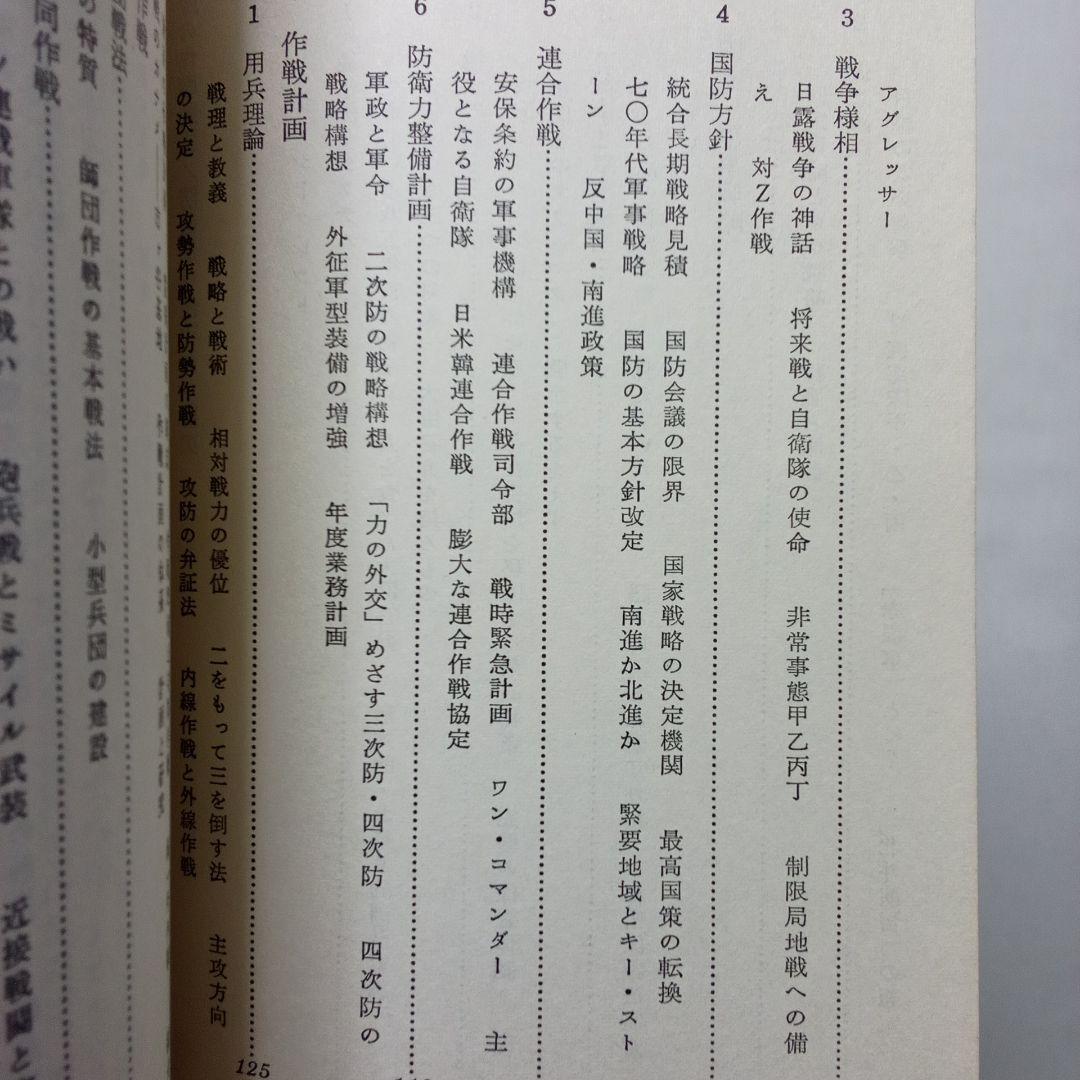 アグレッサー
3 戦争様相
日露戦争の神話 将来戦と自衛隊の使命 非常事態甲乙丙丁 制限局地戦への備
え 対Z作戦
4 国防方針
統合長期戦略見積 国防会議の限界 国家戦略の決定機関 最高国策の転換
七〇年代軍事戦略 国防の基本方針改定 南進か北進か 緊要地域とキー・スト
ーン 反中国・南進政策
5 連合作戦
安保条約の軍事機構 連合作戦司令部 戦時緊急計画 ワン・コマンダー 主
役となる自衛隊 日米韓連合作戦 膨大な連合作戦協定
6 防衛力整備計画
軍政と軍令 二次防の戦略構想 「力の外交」めざす三次防・四次防 四次防の
戦略構想 外征軍型装備の増強 年度業務計画
作戦計画
1 用兵理論 125
戦理と教義 戦略と戦術 相対戦力の優位 二をもって三を倒す法 主攻方向
の決定 攻勢作戦と防勢作戦 攻防の弁証法 内線作戦と外線作戦
師団作戦の基本戦法 小型兵団の建設
の特質
同作戦
連戦軍隊との戦い 砲兵戦とミサイル武装 近接戦闘と